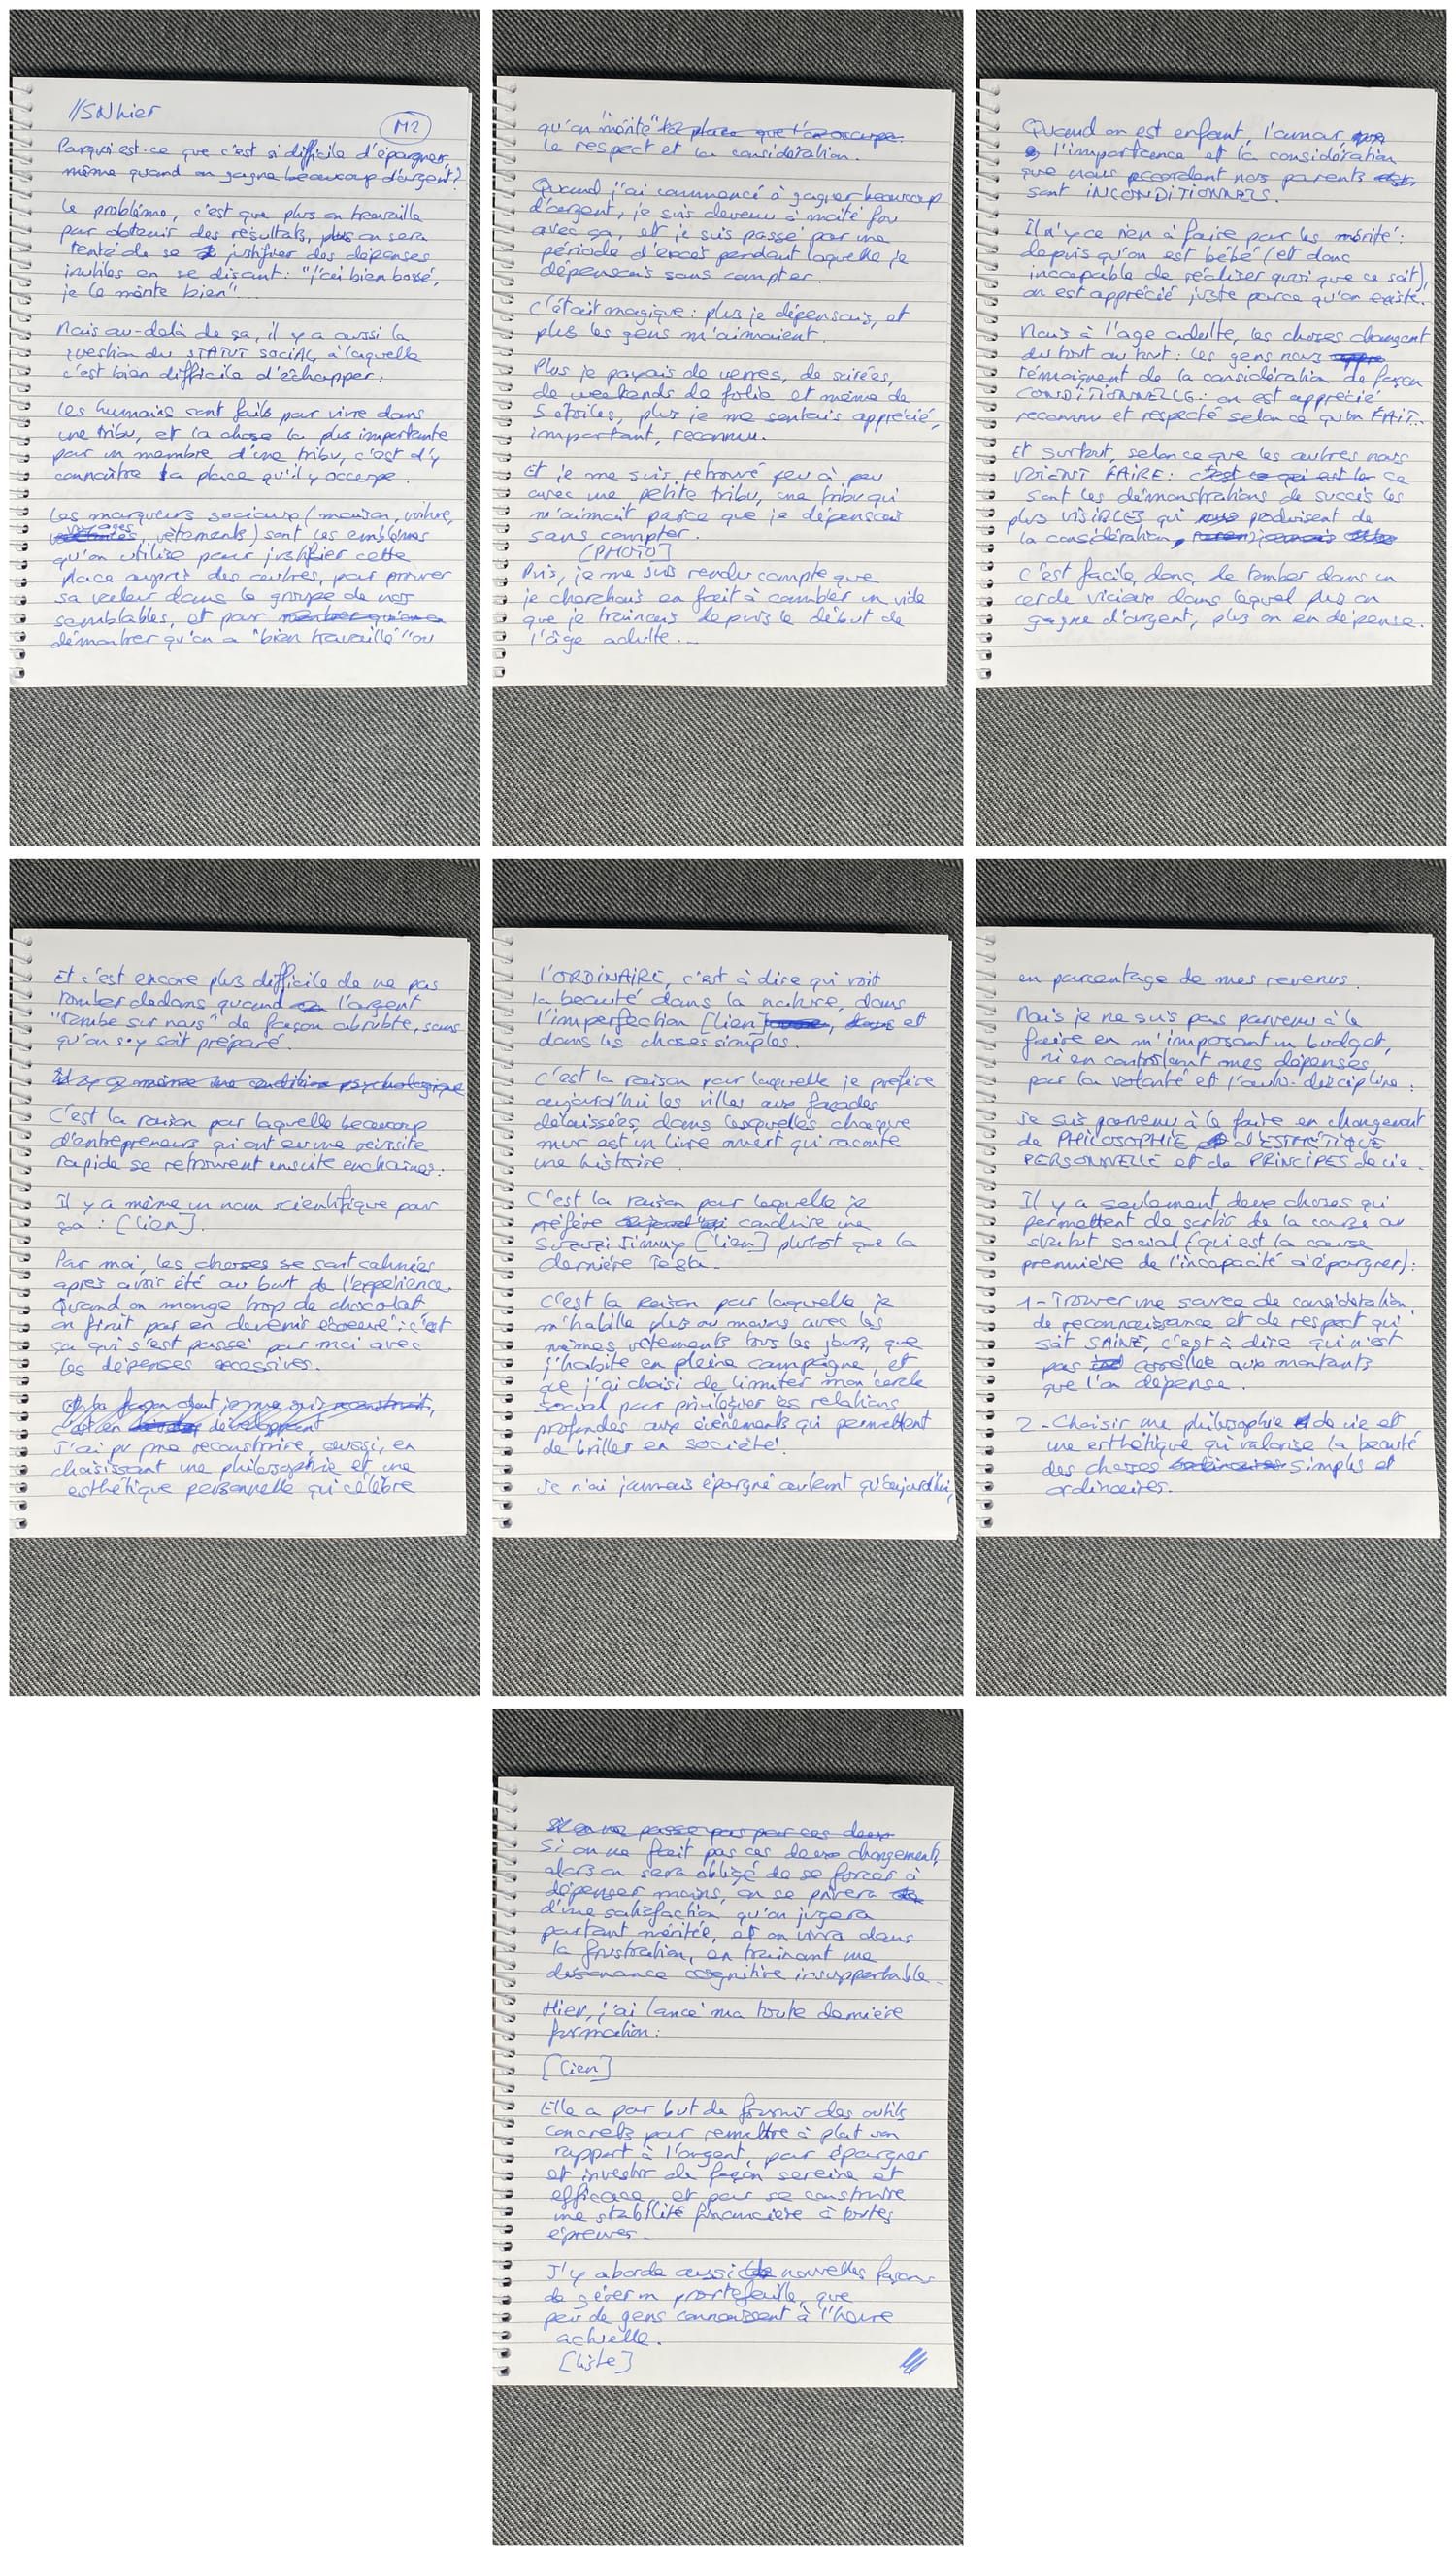 //SN hier
M2
Pourquoi est-ce que c'est si difficile d'épargner,
même quand on gagne beaucoup d'argent?
Le problème, c'est que plus on travaille
pour obtenir des résultats, plus on sera
tenté de se justifier des dépenses
inutiles en se disant: "j'ai bien bossé,
je le mérite bien"...
Mais au-delà de ça, il y a aussi la
question du STATUT SOCIAL, à laquelle
c'est bien difficile d'échapper:
Les humains sont faits pour vivre dans
une tribu, et la chose la plus importante
pour un membre d'une tribu, c'est d'y
connaître la place qu'il y occupe.
Les marqueurs sociaux (maison, voiture,
voyages
, vêtements) sont les emblèmes
qu'on utilise pour justifier cette
place auprès des autres, pour prouver
sa valeur dans le groupe de nos
semblables, et pour
démontrer qu'on a "bien travaillé" ou
qu'on "mérite" la place que l'on occupe.
le respect et la considération.
Quand j'ai commencé à gagner beaucoup
d'argent, je suis devenu à moitié fou
avec ça, et je suis passé par une
période d'excès pendant laquelle je
dépensais sans compter.
C'était magique: plus je dépensais, et
plus les gens m'aimaient.
Plus je payais de verres, de soirées,
de weekends de folie et même de
5 étoiles, plus je me sentais apprécié,
important, reconnu.
Et je me suis retrouvé peu à peu
avec une petite tribu, une tribu qui
m'aimait parce que je dépensais
sans compter.
[PHOTO]
Puis, je me suis rendu compte que
je cherchais en fait à combler un vide
que je trainais depuis le début de
l'âge adulte...
Quand on est enfant, l'amour,
l'importance et la considération
que nous accordent nos parents
sont INCONDITIONNELS.
Il n'y a rien à faire pour les mérité:
depuis qu'on est bébé (et donc
incapable de réaliser quoi que ce soit),
on est apprécié juste parce qu'on existe.
Mais à l'age adulte, les choses changent
du tout au tout: les gens nous
témoignent de la considération de façon
CONDITIONNELLE: on est apprécié
reconnu et respecté selon ce qu'on FAIT...
Et surtout, selon ce que les autres nous
VOIENT FAIRE: c'est ce qui est le ce
sont les démonstrations de succès les
plus VISIBLES qui produisent de
la considération,
C'est facile, donc, de tomber dans un
cercle vicieux dans lequel plus on
gagne d'argent, plus on en dépense.
Et c'est encore plus difficile de ne pas
tomber dedans quand l'argent
"tombe sur nous" de façon abrubte, sans
qu'on s'y soit préparé.
Il y a même une condition psychologique
C'est la raison pour laquelle beaucoup
d'entrepreneurs qui ont eu une réussite
rapide se retrouvent ensuite enchainés:
Il y a même un nom scientifique pour
ça: [lien].
Pour moi, les choses se sont calmées
après avoir été au bout de l'expérience.
Quand on mange trop de chocolat
on finit par en devenir écoeuré: c'est
ça qui s'est passé pour moi avec
les dépenses excessives.
Et la façon dont je me suis reconstruit,
c'est en développant
J'ai pu me reconstruire, aussi, en
choisissant une philosophie et une
esthétique personnelle qui célèbre
l'ORDINAIRE, c'est à dire qui voit
la beauté dans la nature, dans
l'imperfection [lien], dans et
dans les choses simples.
C'est la raison pour laquelle je préfère
aujourd'hui les villes aux façades
délaissées, dans lesquelles chaque
mur est un livre ouvert qui raconte
une histoire.
C'est la raison pour laquelle je
préfère aujourd'hui conduire une
Suzuki Jimny [lien] plutôt que la
dernière Tesla.
C'est la raison pour laquelle je
m'habille plus ou moins avec les
mêmes vêtements tous les jours, que
j'habite en pleine campagne, et
que j'ai choisi de limiter mon cercle
social pour privilégier les relations
profondes aux évènements qui permettent
de briller en société.
Je n'ai jamais épargné autant qu'aujourd'hui,
en parcentage de mes revenus.
Mais je ne suis pas parvenu à le
faire en m'imposant un budget,
ni en controlant mes dépenses
par la volonté et l'auto-discipline:
Je suis parvenu à le faire en changeant
de PHILOSOPHIE, d'ESTHÉTIQUE
PERSONNELLE et de PRINCIPES de vie.
Il y a seulement deux choses qui
permettent de sortir de la course au
statut social (qui est la cause
première de l'incapacité à épargner):
1- Trouver une source de considération,
de reconnaissance et de respect qui
soit SAINE, c'est à dire qui n'est
pas corrélée aux montants
que l'on dépense.
2- Choisir une philosophie de vie et
une esthétique qui valorise la beauté
des choses ordinaires simples et
ordinaires.
Si on ne passe pas par ces deux
Si on ne fait pas ces deux changements,
alors on sera obligé de se forcer à
dépenser moins, on se privera
d'une satisfaction qu'on jugera
pourtant méritée, et on vivra dans
la frustration, en trainant une
dissonance cognitive insupportable.
Hier, j'ai lancé ma toute dernière
formation:
[lien]
Elle a pour but de fournir des outils
concrets pour remettre à plat son
rapport à l'argent, pour épargner
et investir de façon sereine et
efficace, et pour se construire
une stabilité financière à toutes
épreuves.
J'y aborde aussi de nouvelles façons
de gérer un portefeuille, que
peu de gens connaissent à l'heure
actuelle.
[liste]